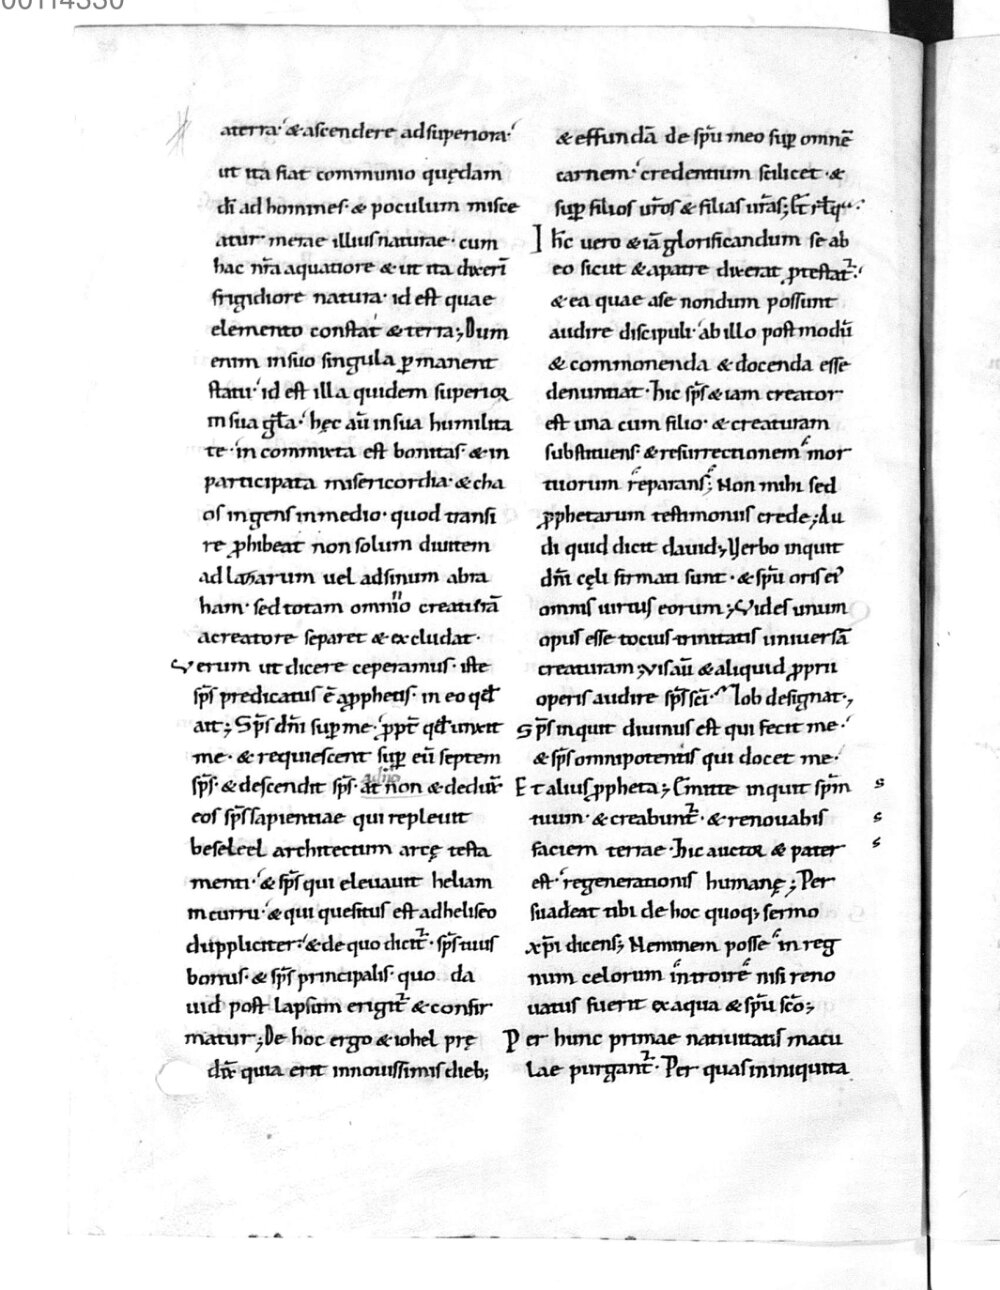 00114330
aterra· & ascendere ad superiora·
ut ita fiat communio quędam
dī ad homines· & poculum misce
atur merae illius naturae· cum
hac nr̄a aquatiore & ut ita dixerī
frigidiore natura· id est quae
elemento constat & terra; Dum
enim insuo singula ꝑmanent
statu· id est illa quidem superior
in sua gl̄a· hęc aū insua humilita
te· in commixta est bonitas· & in
participata misericordia· & cha
os ingens inmedio· quod transi
re ꝓhibeat non solum diuitem
ad lazarum uel adsinum abra
ham· sed totam omnino creaturā
acreatore separet & excludat·
Verum ut dicere ceperamus· iste
sp̄s predicatus ē aꝓphetis· in eo qđ
ait; Sp̄s dn̄i suꝑ me· ꝓpt̄ qđ unxit
me· & requiescent suꝑ eū septem
sp̄s· & descendit sp̄s· at non & dedux̄
eos sp̄s sapientiae qui repleuit
beseleel architectum arcę testa
menti· & sp̄s qui eleuauit heliam
incurru· & qui quesitus est adheliseo
duppliciter· & de quo dicit᷑· sp̄s tuus
bonus· & sp̄s principalis· quo da
uid post lapsum erigit᷑ & confir
matur; De hoc ergo & iohel prę
dix̄ quia erit innouissimis dieb;
& effundā de sp̄u meo suꝑ omnē
carnem· credentium scilicet· &
suꝑ filios ur̄os & filias ur̄as;
I h̄c uero & iā glorificandum se ab
eo sicut & apatre dixerat ꝓestat᷑·
& ea quae ase nondum possunt
audire discipuli· ab illo postmodū
& commonenda & docenda esse
denuntiat· hic sp̄s & iam creator
est una cum filio· & creaturam
substituens· & resurrectionem mor
tuorum reparans; Non mihi sed
ꝓphetarum testimoniis crede; Au
di quid dicit dauid; Verbo inquit
dn̄i cęli firmati sunt· & sp̄u oris ei᾿
omnis uirtus eorum; Vides unum
opus esse tocius trinitatis uniuersā
creaturam; Vis aū & aliquid ꝓprii
operis audire sp̄s sc̄i· Iob designat·,
Sp̄s inquit diuinus est qui fecit me·
& sp̄s omnipotentis qui docet me·
Et alius ꝓpheta; Emitte inquit sp̄m s
tuum· & creabunt᷑· & renouabis s
faciem terrae· hic auctor & pater s
est· regenerationis humanę; Per
suadeat tibi de hoc quoq; sermo
xp̄i dicens; Neminem posse in reg
num celorum introire nisi reno
uatus fuerit exaqua & sp̄u sc̄o;
Per hunc primae natiuitatis macu
lae purgant᷑· Per quas ininiquita